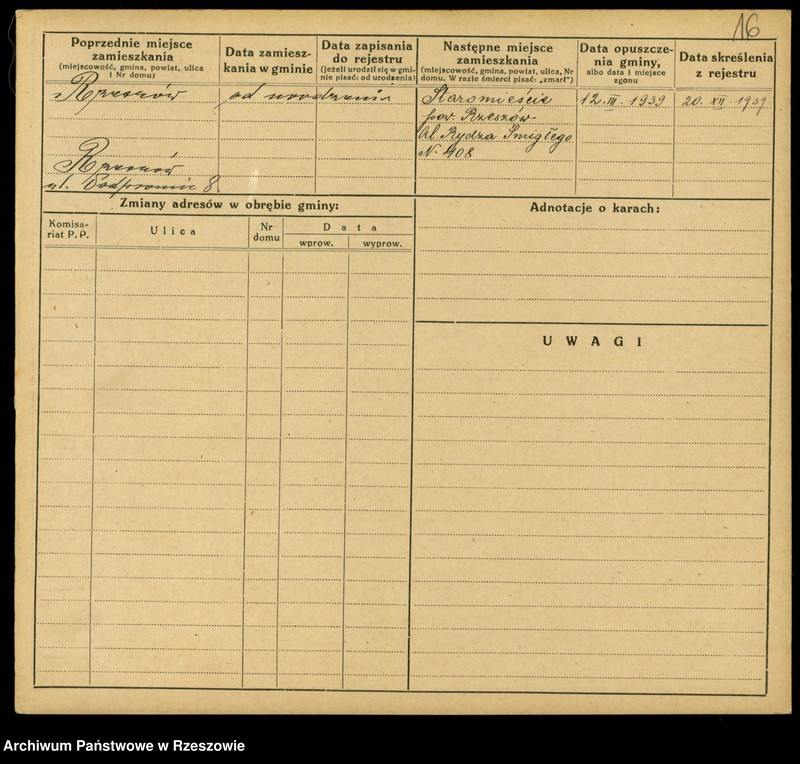 16
Poprzednie miejsce
zamieszkania
(miejscowość, gmina, powiat, ulica
i Nr domu)
Data zamiesz-
kania w gminie
Data zapisania
do rejestru
(jeżeli urodził się w gmi-
nie pisać: od urodzenia)
Następne miejsce
zamieszkania
(miejscowość, gmina, powiat, ulica, Nr
domu. W razie śmierci pisać: „zmarł")
Data opuszcze-
nia gminy,
albo data i miejsce
zgonu
Data skreślenia
z rejestru
Rzeszów
od urodzenia
Staromieście
pow. Rzeszow
Al. Rydza Śmigłego
N. 408
12. III. 1939
20. XII. 1939
Rzeszów
ul. 8
Zmiany adresów w obrębie gminy:
Komisa-
riat P. P.
Ulica
Nr
domu
Data
wprow.
wyprow.
Adnotacje o karach:
UWAGI
Archiwum Państwowe w Rzeszowie